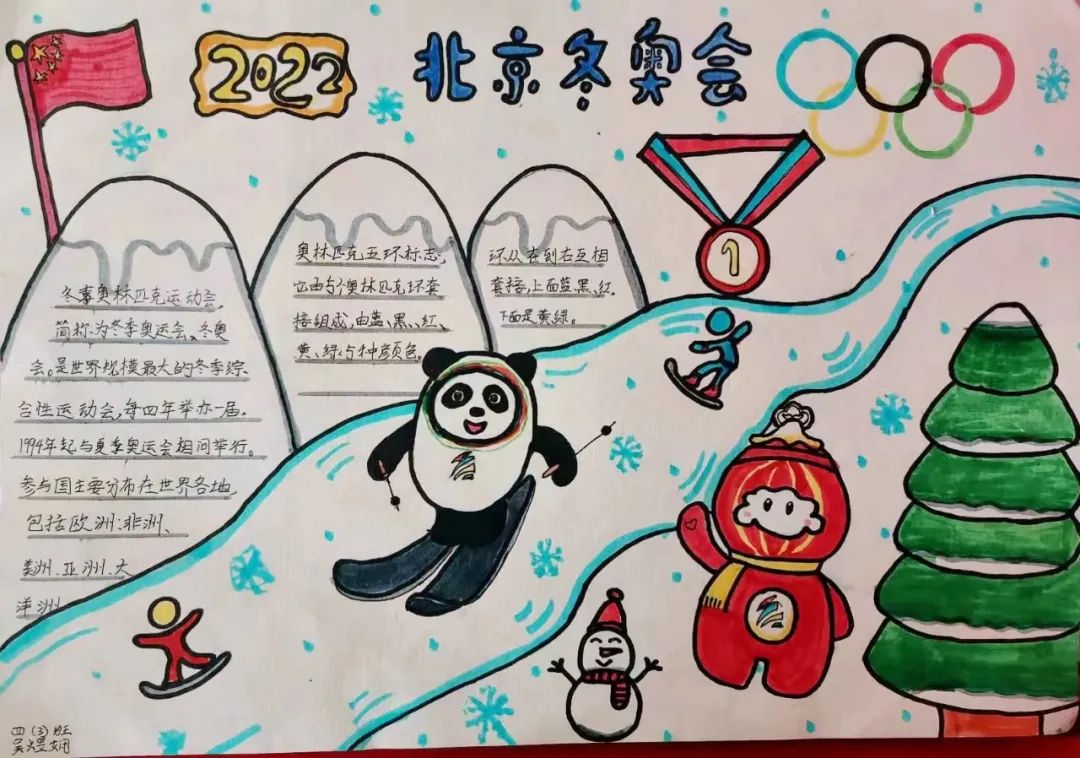 2022
北京冬奥会
1
冬季奥林匹克运动会,
简称为冬季奥运会、冬奥
会。是世界规模最大的冬季综
合性运动会,每四年举办一届。
1994年起与夏季奥运会相间举行。
参与国主要分布在世界各地,
包括欧洲、非洲、
美洲、亚洲、大
洋洲
奥林匹克五环标志,
它由5个奥林匹克环套
接组成,由蓝、黑、红、
黄、绿5种颜色。
环从左到右互相
套接,上面蓝、黑、红。
下面是黄绿。
四(3)班